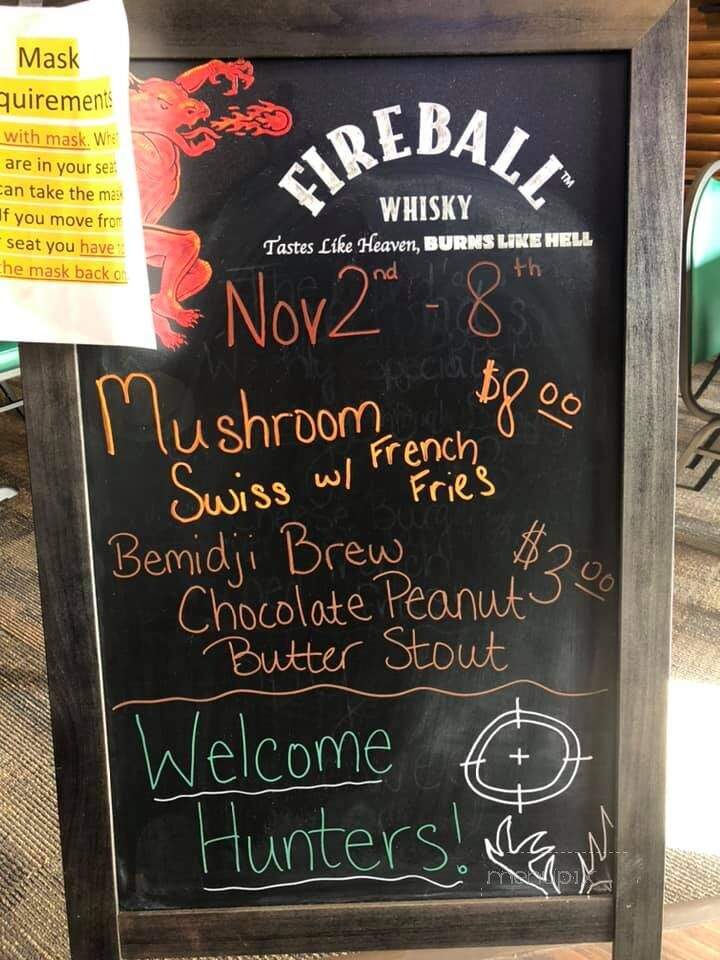 Mask
quirements
with mask. Whe
are in your seat
can take the mask
If you move from
seat you have to
the mask back on
FIREBALL™
WHISKY
Tastes Like Heaven, BURNS LIKE HELL
Nov 2nd - 8th
Mushroom $8.00
Swiss w/ French
Fries
Bemidji Brew
Chocolate Peanut $3.00
Butter Stout
Welcome
Hunters!